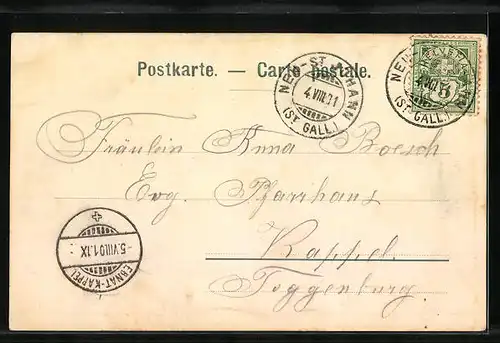 Postkarte. — Carte postale.
NEU-ST. JOHANN
4.VIII.01
(ST. GALL.)
NEU
(ST. GALL.)
HELVETIA
5
Fräulein Anna Boesch
Evg. Pfarrhaus
Kappel
Toggenburg
-5.VIII.01.IX
EBNAT-KAPPEL